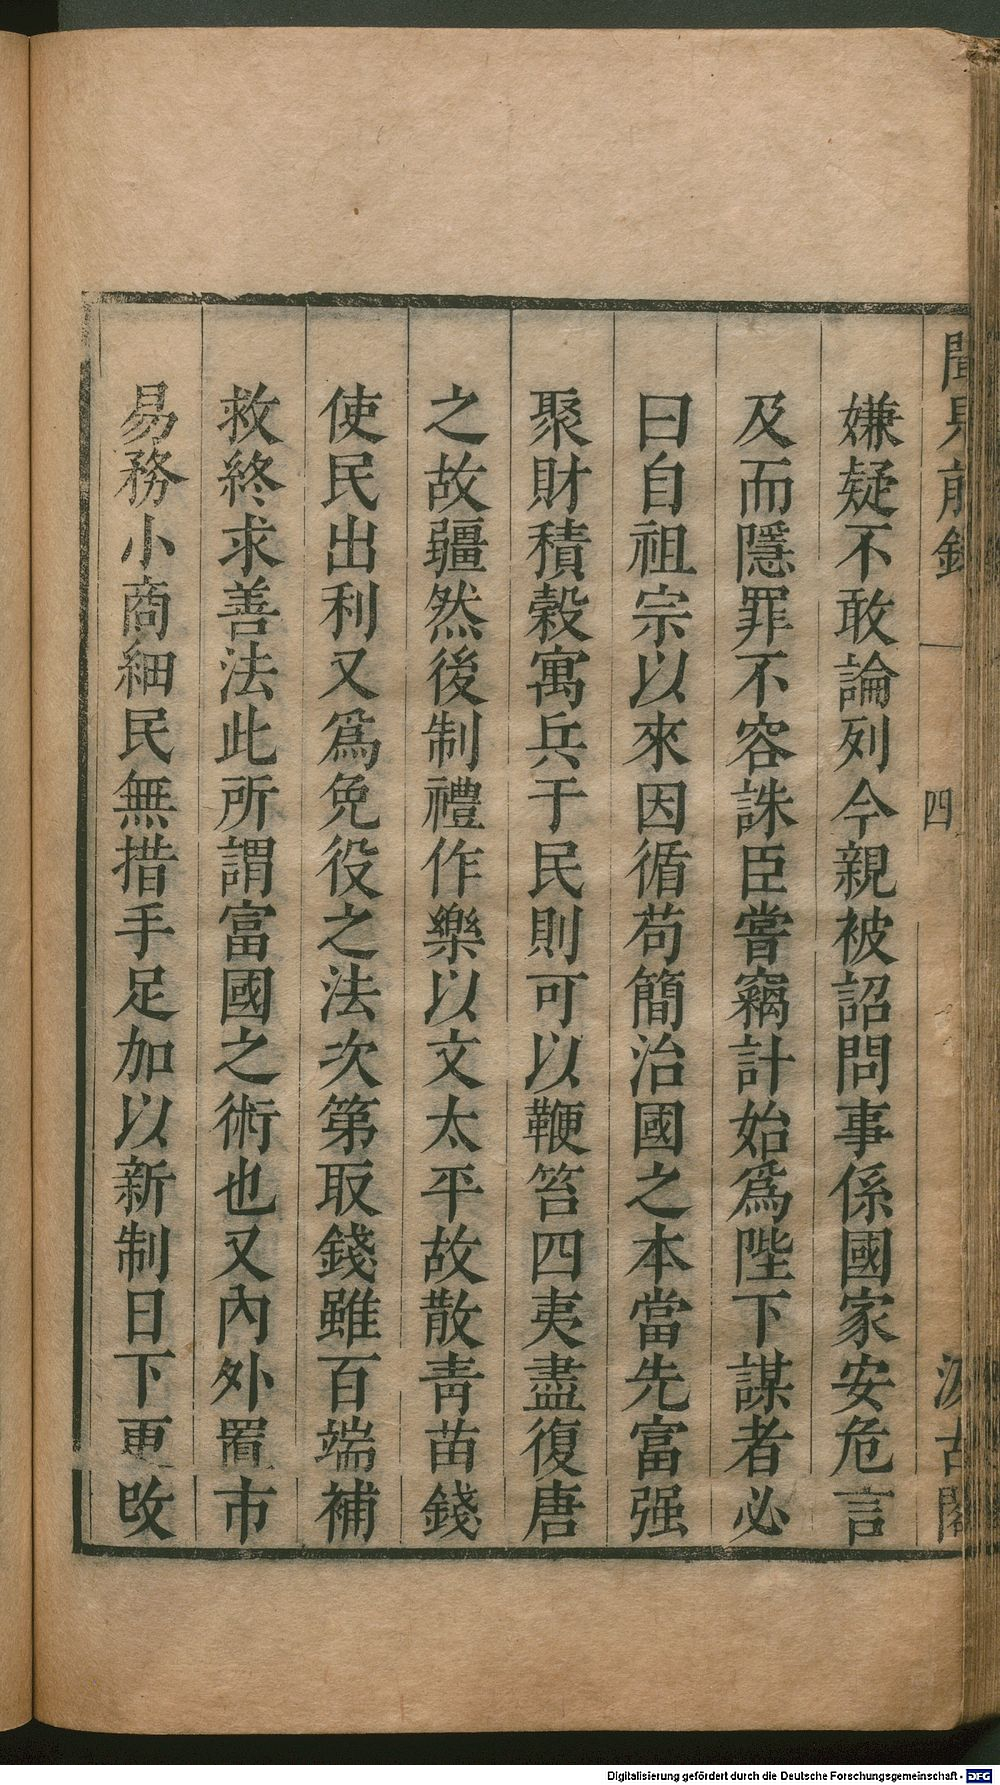 聞見前錄
四
汲古閣
嫌疑不敢論列今親被詔問事係國家安危言
及而隱罪不容誅臣嘗竊計始爲陛下謀者必
曰自祖宗以來因循苟簡治國之本當先富强
聚財積穀寓兵于民則可以鞭笞四夷盡復唐
之故疆然後制禮作樂以文太平故散靑苗錢
使民出利又爲免役之法次第取錢雖百端補
救終求善法此所謂富國之術也又內外置市
易務小商細民無措手足加以新制日下更改
Digitalisierung gefördert durch die Deutsche Forschungsgemeinschaft - DFG